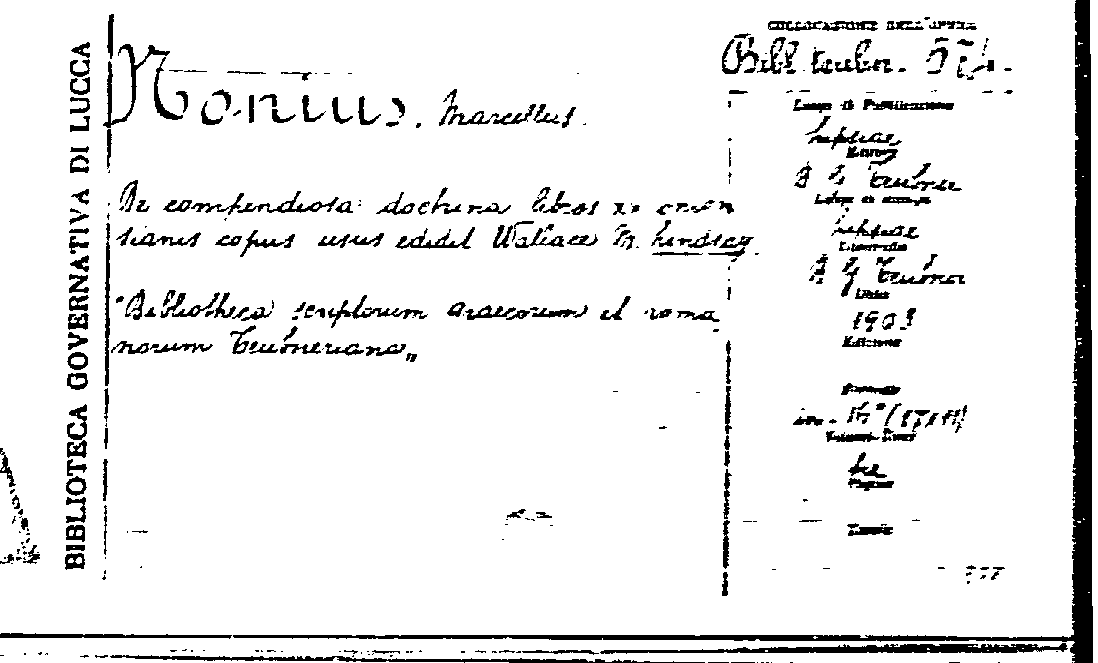 BIBLIOTECA GOVERNATIVA DI LUCCA
Nonius, Marcellus.
De compendiosa doctrina libros xx onion
sianis copiis usus edidit Wallace M. Lindsay.
"Bibliotheca scriptorum graecorum et roma
norum Teubneriana„
COLLOCAZIONE DELL'OPERA
Bibl. teubn.
Luogo di Pubblicazione
Lipsiae
Editore
B G Teubner
Luogo di stampa
Lipsiae
Tipografia
B G Teubner
Data
1903
Edizione
Formato
in- 16°
tre
Pagine
Tavole